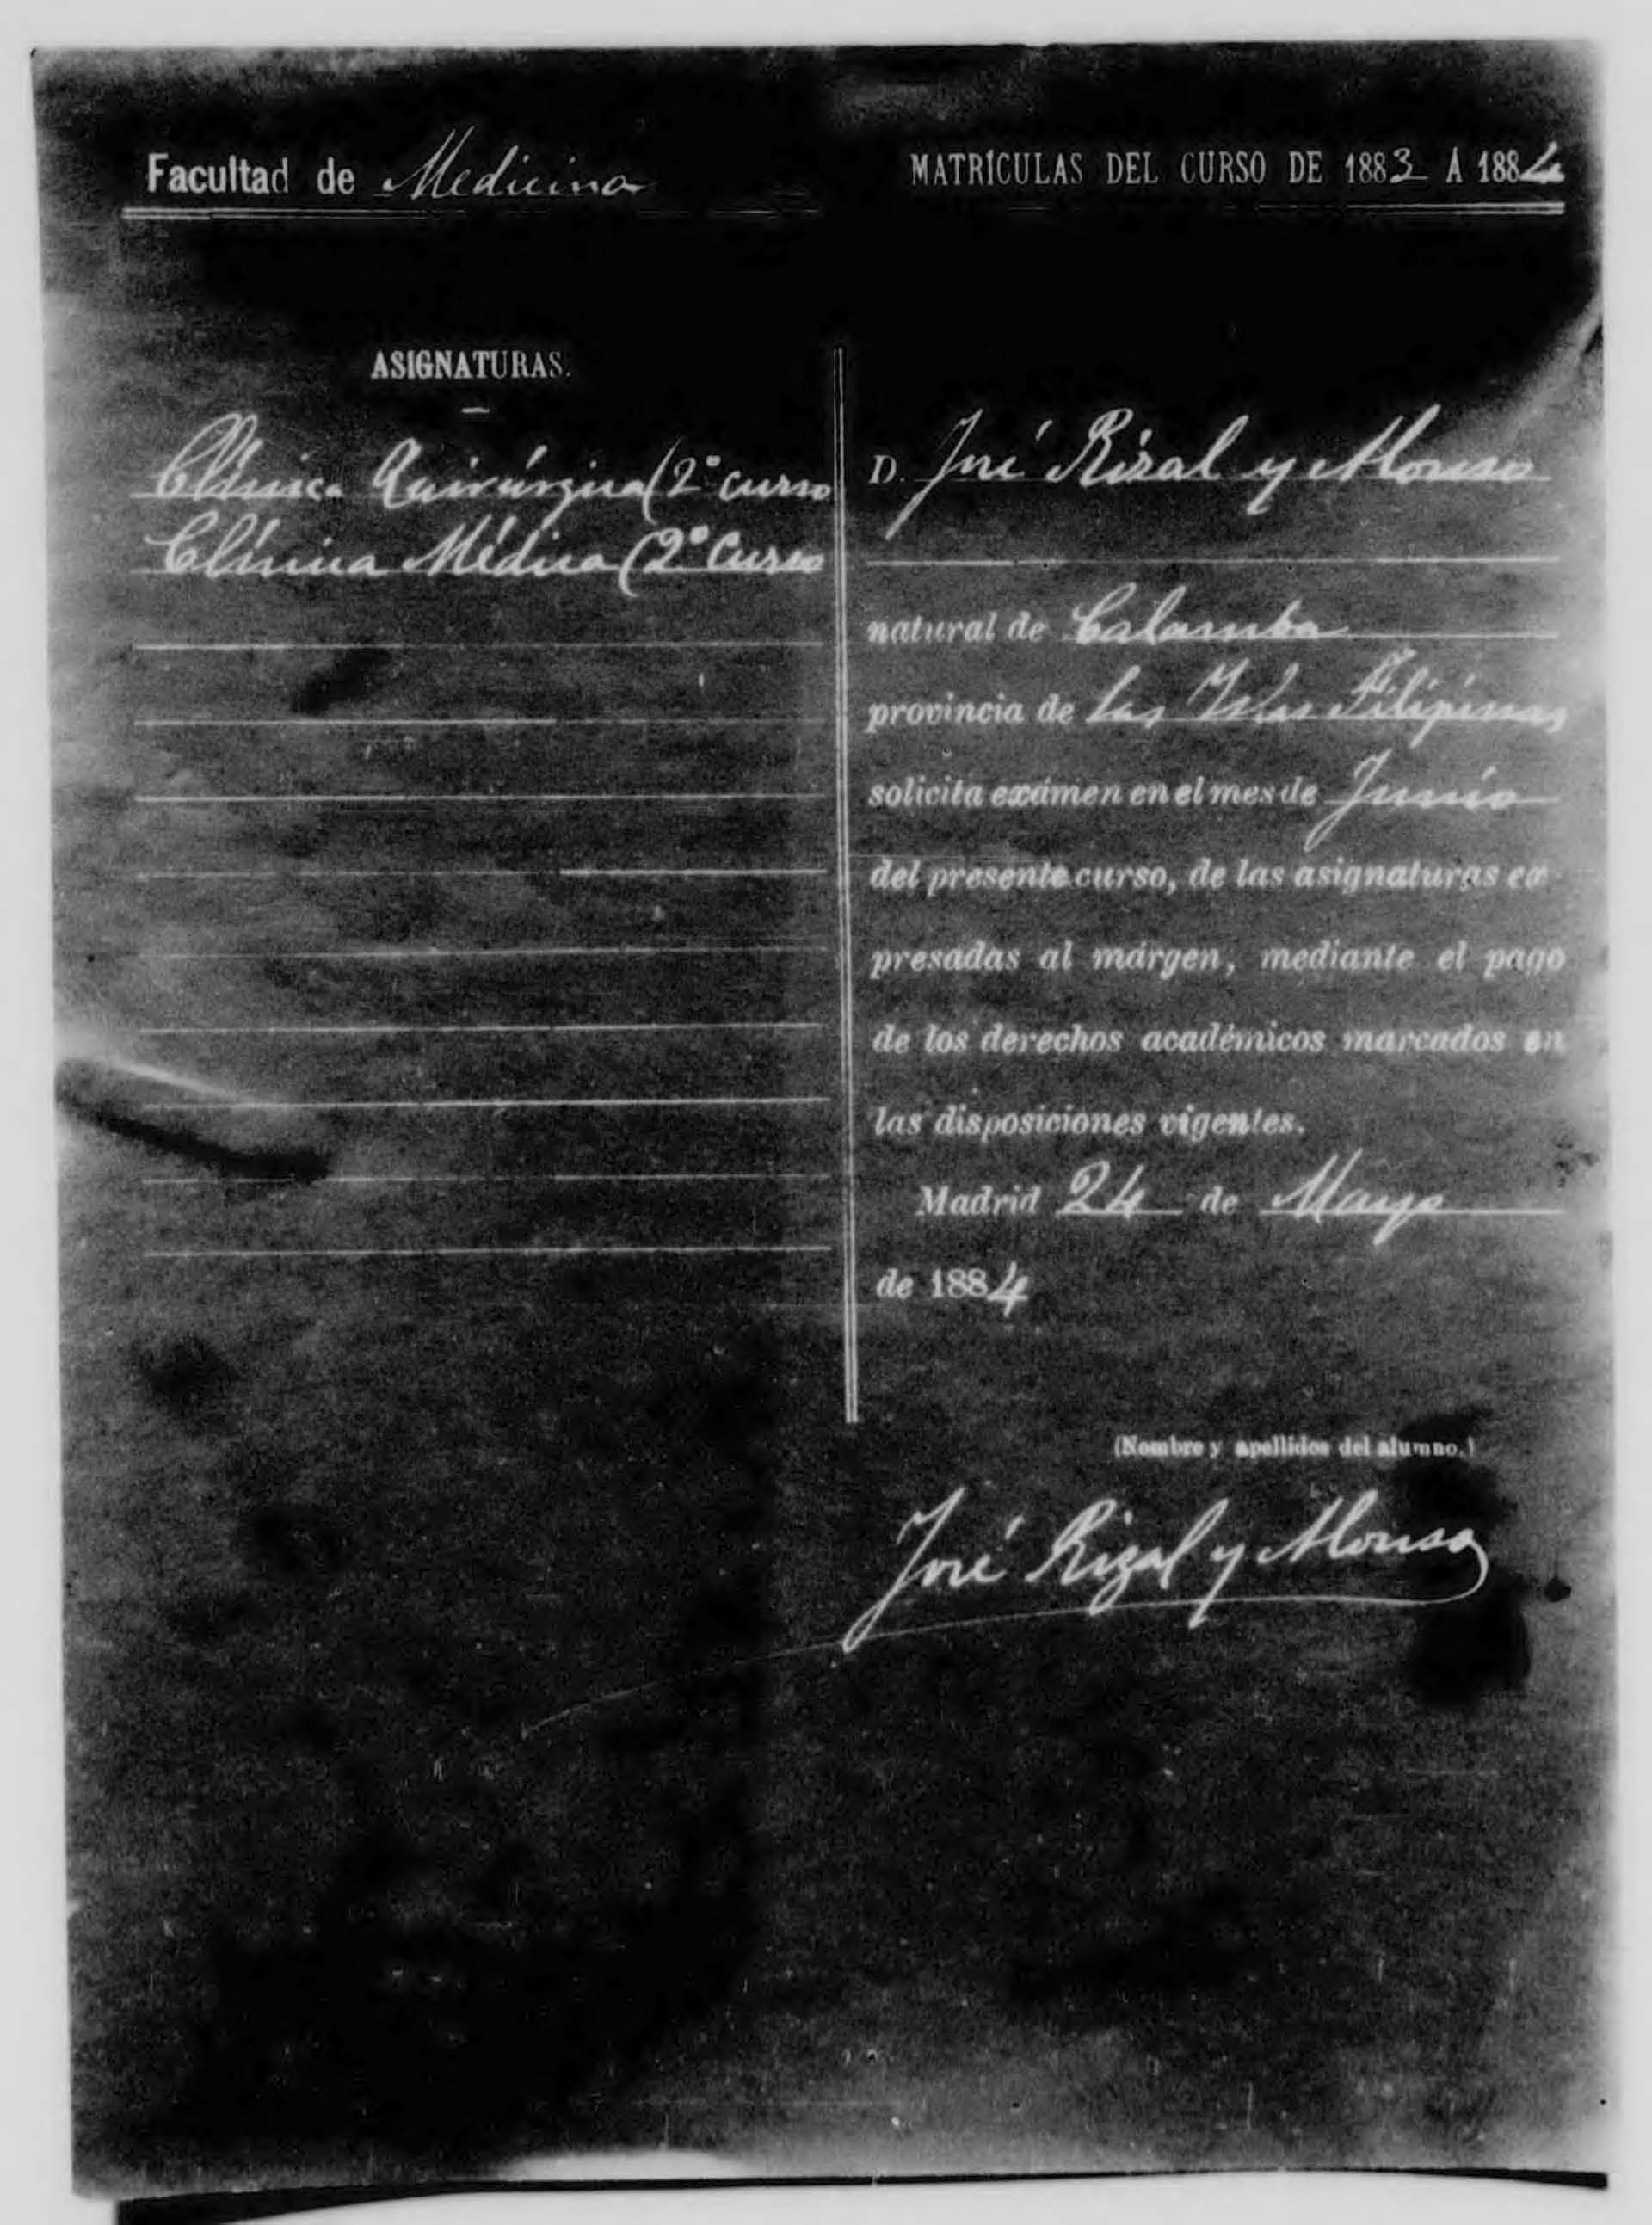 Facultad de Medicina
MATRÍCULAS DEL CURSO DE 1883 Á 1884
ASIGNATURAS.
Clínica Quirúrgica (2º curso
Clínica Médica (2º Curso
D. José Rizal y Alonso
natural de Calamba
provincia de las Islas Filipinas
solicita exámen en el mes de Junio
del presente curso, de las asignaturas ex-
presadas al márgen, mediante el pago
de los derechos académicos marcados en
las disposiciones vigentes.
Madrid 24 de Mayo
de 1884
(Nombre y apellidos del alumno.)
José Rizal y Alonso